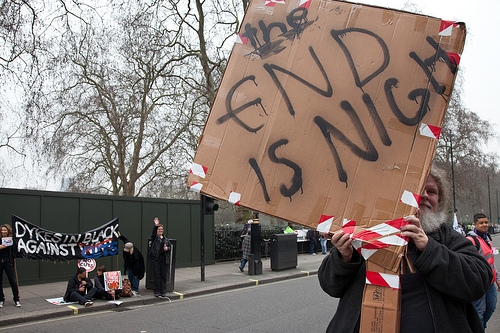 the
END
IS NIGH
DYKES IN BLACK
AGAINST